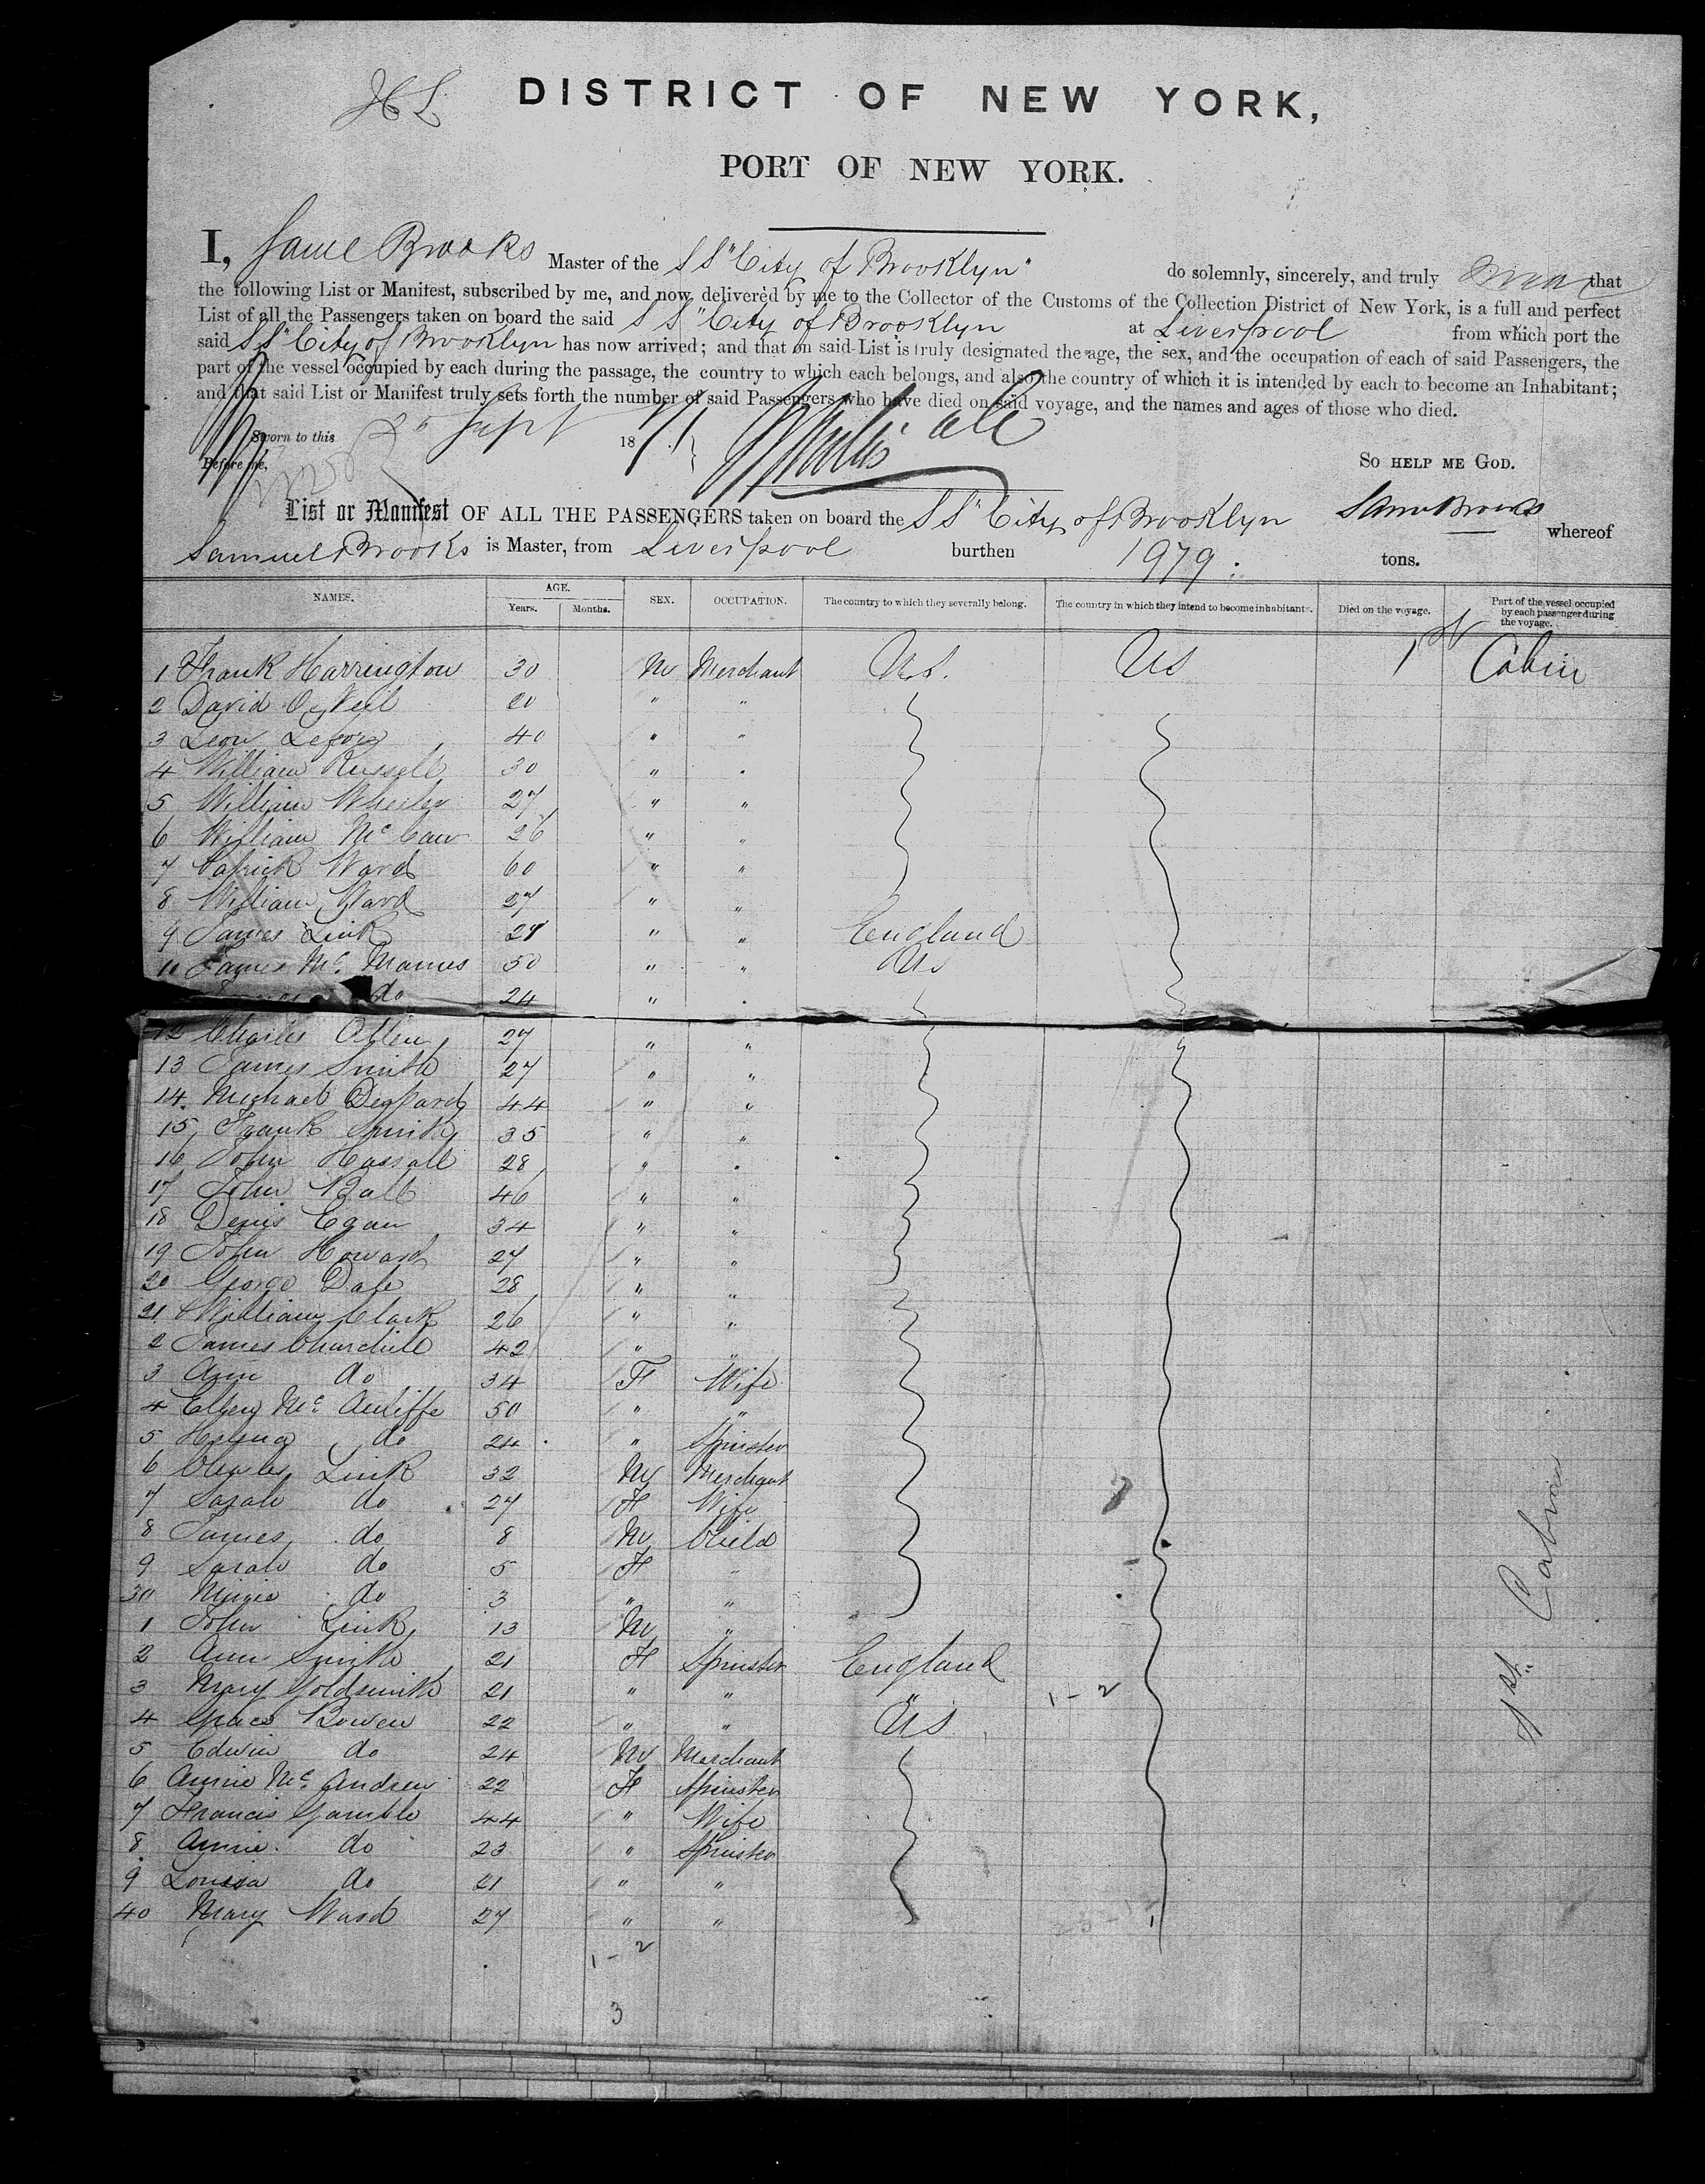 H L
DISTRICT OF NEW YORK,
PORT OF NEW YORK.
I, Saml Brooks Master of the SS "City of Brooklyn" do solemnly, sincerely, and truly swear that
the following List or Manifest, subscribed by me, and now delivered by me to the Collector of the Customs of the Collection District of New York, is a full and perfect
List of all the Passengers taken on board the said SS "City of Brooklyn at Liverpool from which port the
said SS "City of Brooklyn has now arrived; and that on said List is truly designated the age, the sex, and the occupation of each of said Passengers, the
part of the vessel occupied by each during the passage, the country to which each belongs, and also the country of which it is intended by each to become an Inhabitant;
and that said List or Manifest truly sets forth the number of said Passengers who have died on said voyage, and the names and ages of those who died.
Sworn to this Sept 1871
Before me,
SO HELP ME GOD.
Saml Brooks
List or Manifest OF ALL THE PASSENGERS taken on board the SS "City of Brooklyn whereof
Samuel Brooks is Master, from Liverpool burthen 1979. tons.
NAMES. AGE. Years. Months. SEX. OCCUPATION. The country to which they severally belong. The country in which they intend to become inhabitants. Died on the voyage. Part of the vessel occupied by each passenger during the voyage.
1 Frank Harrington 30 M Merchant U.S. US 1st Cabin
2 David O'Neil 20 " "
3 Leon 40 " "
4 William Russell 30 " "
5 William Wheeler 27 " "
6 William McCaw 26 " "
7 Patrick Ward 60 " "
8 William Ward 27 " "
9 James Link 28 " " England
10 James McManus 50 " " US
do 24 " "
12 Charles Allen 27 " "
13 James Smith 27 " "
14 Michael Deppard 44 " "
15 Frank Smith 35 " "
16 John Hassall 28 " "
17 John Ball 46 " "
18 Denis Egan 34 " "
19 John Howard 27 " "
20 George Dale 28 " "
21 William Clark 26 " "
2 James Churchill 42 " "
3 Ann do 34 F Wife
4 Ellen McAuliffe 50 " "
5 Helena do 24 " Spinster
6 Charles Link 32 M Merchant
7 Sarah do 27 F Wife
8 James do 8 M Child
9 Sarah do 5 F "
30 Minnie do 3 " "
1 John Link 13 M "
2 Ann Smith 21 F Spinster England
3 Mary Goldsmith 21 " " " 1-2
4 Grace Bowen 22 " " US
5 Edwin do 24 M Merchant
6 Annie McAndrew 22 F Spinster
7 Francis Gamble 44 " Wife
8 Annie do 23 " Spinster
9 Louisa do 21 " "
40 Mary Ward 27 " "
1st Cabin
1-2
3